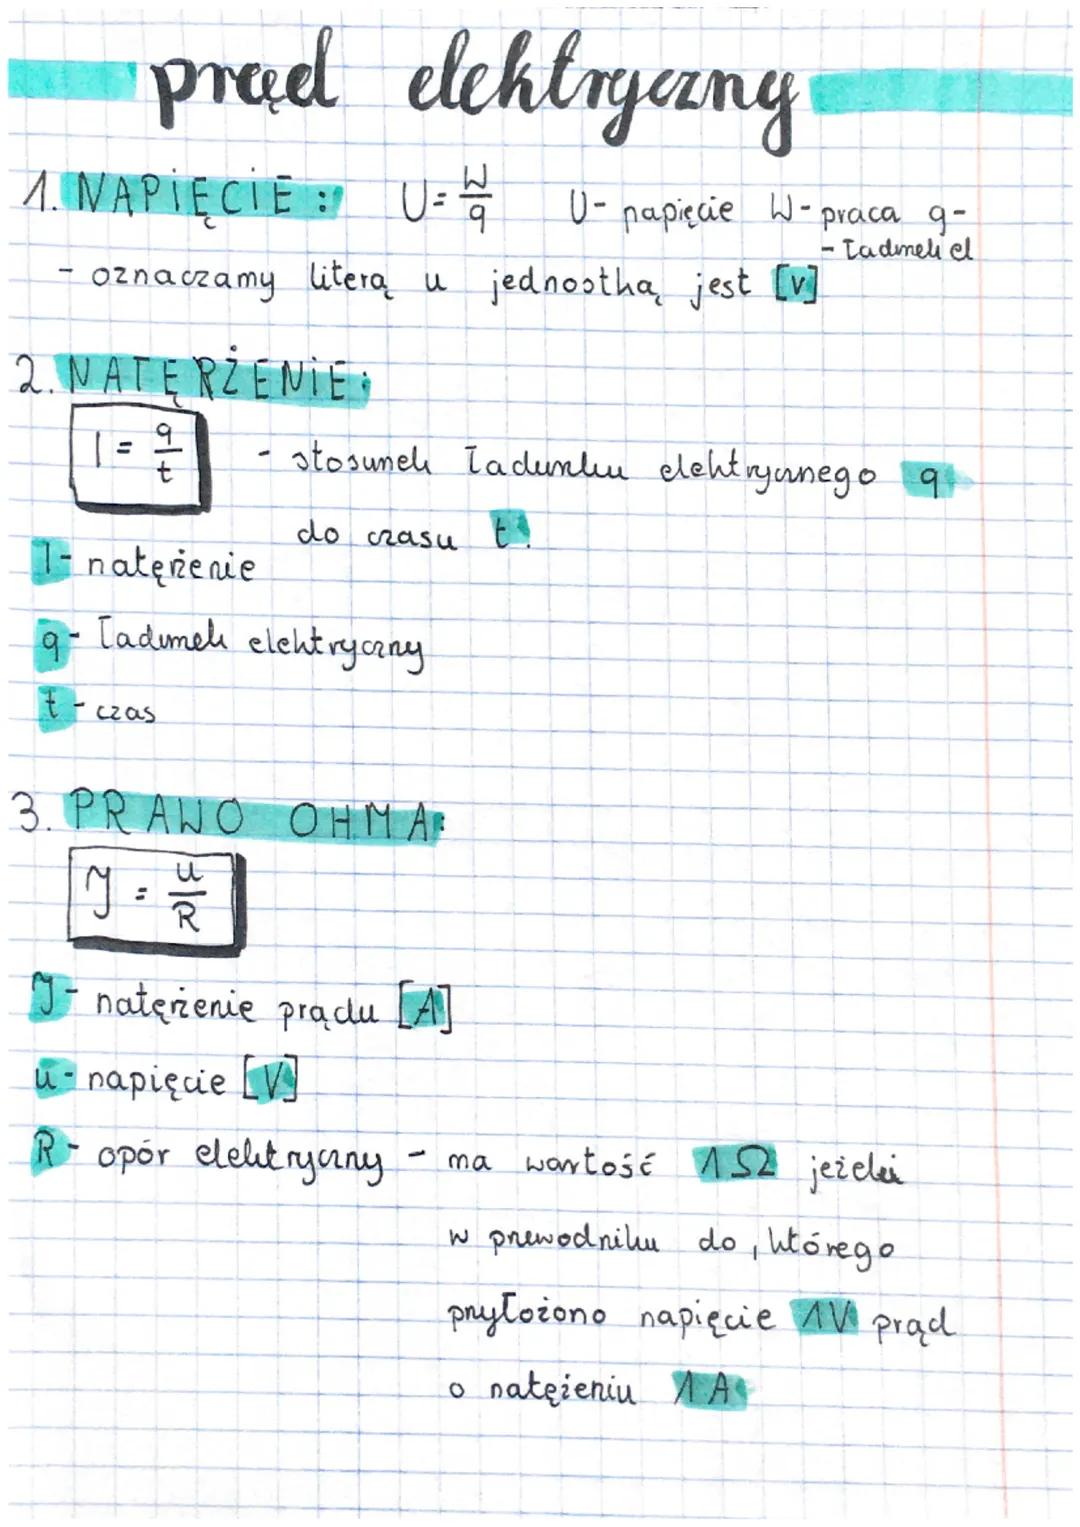 prąd elektryczny
1. NAPIĘCIE: U = W/q U - napięcie W - praca q -
- ładunek el
- oznaczamy literą u jednostką jest [V]
2. NATĘRŻENIE:
I = q/t - stosunek ładunku elektrycznego q
do czasu t.
I - natężenie
q - ładunek elektryczny
t - czas
3. PRAWO OHMA:
J = u/R
J - natężenie prądu [A]
u - napięcie [V]
R - opór elektryczny - ma wartość 1Ω jeżeli
w przewodniku do, którego
przyłożono napięcie 1V prąd
o natężeniu 1A